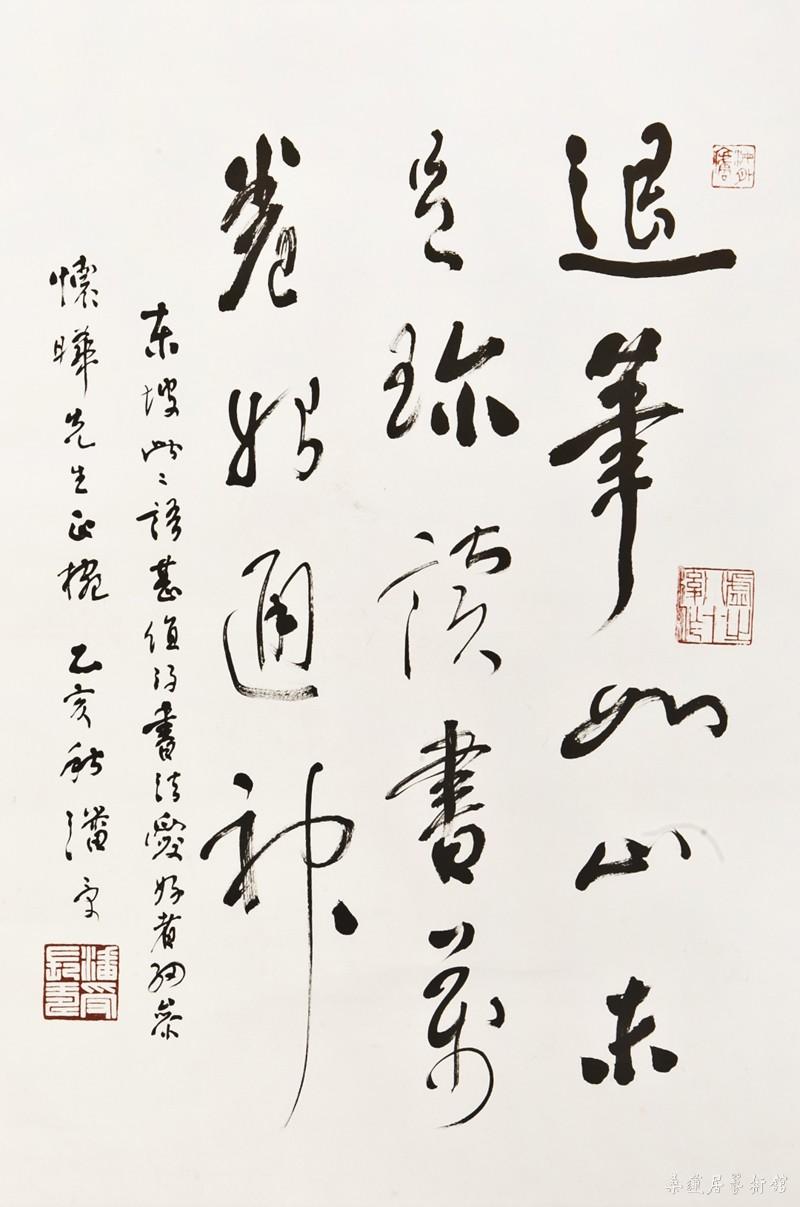 退筆如山未
足珍讀書萬
卷始通神
東坡此二語甚值得書法愛好者細參
懷曄先生正 乙亥秋潘受
潘受長壽
桑蓮居藝術館